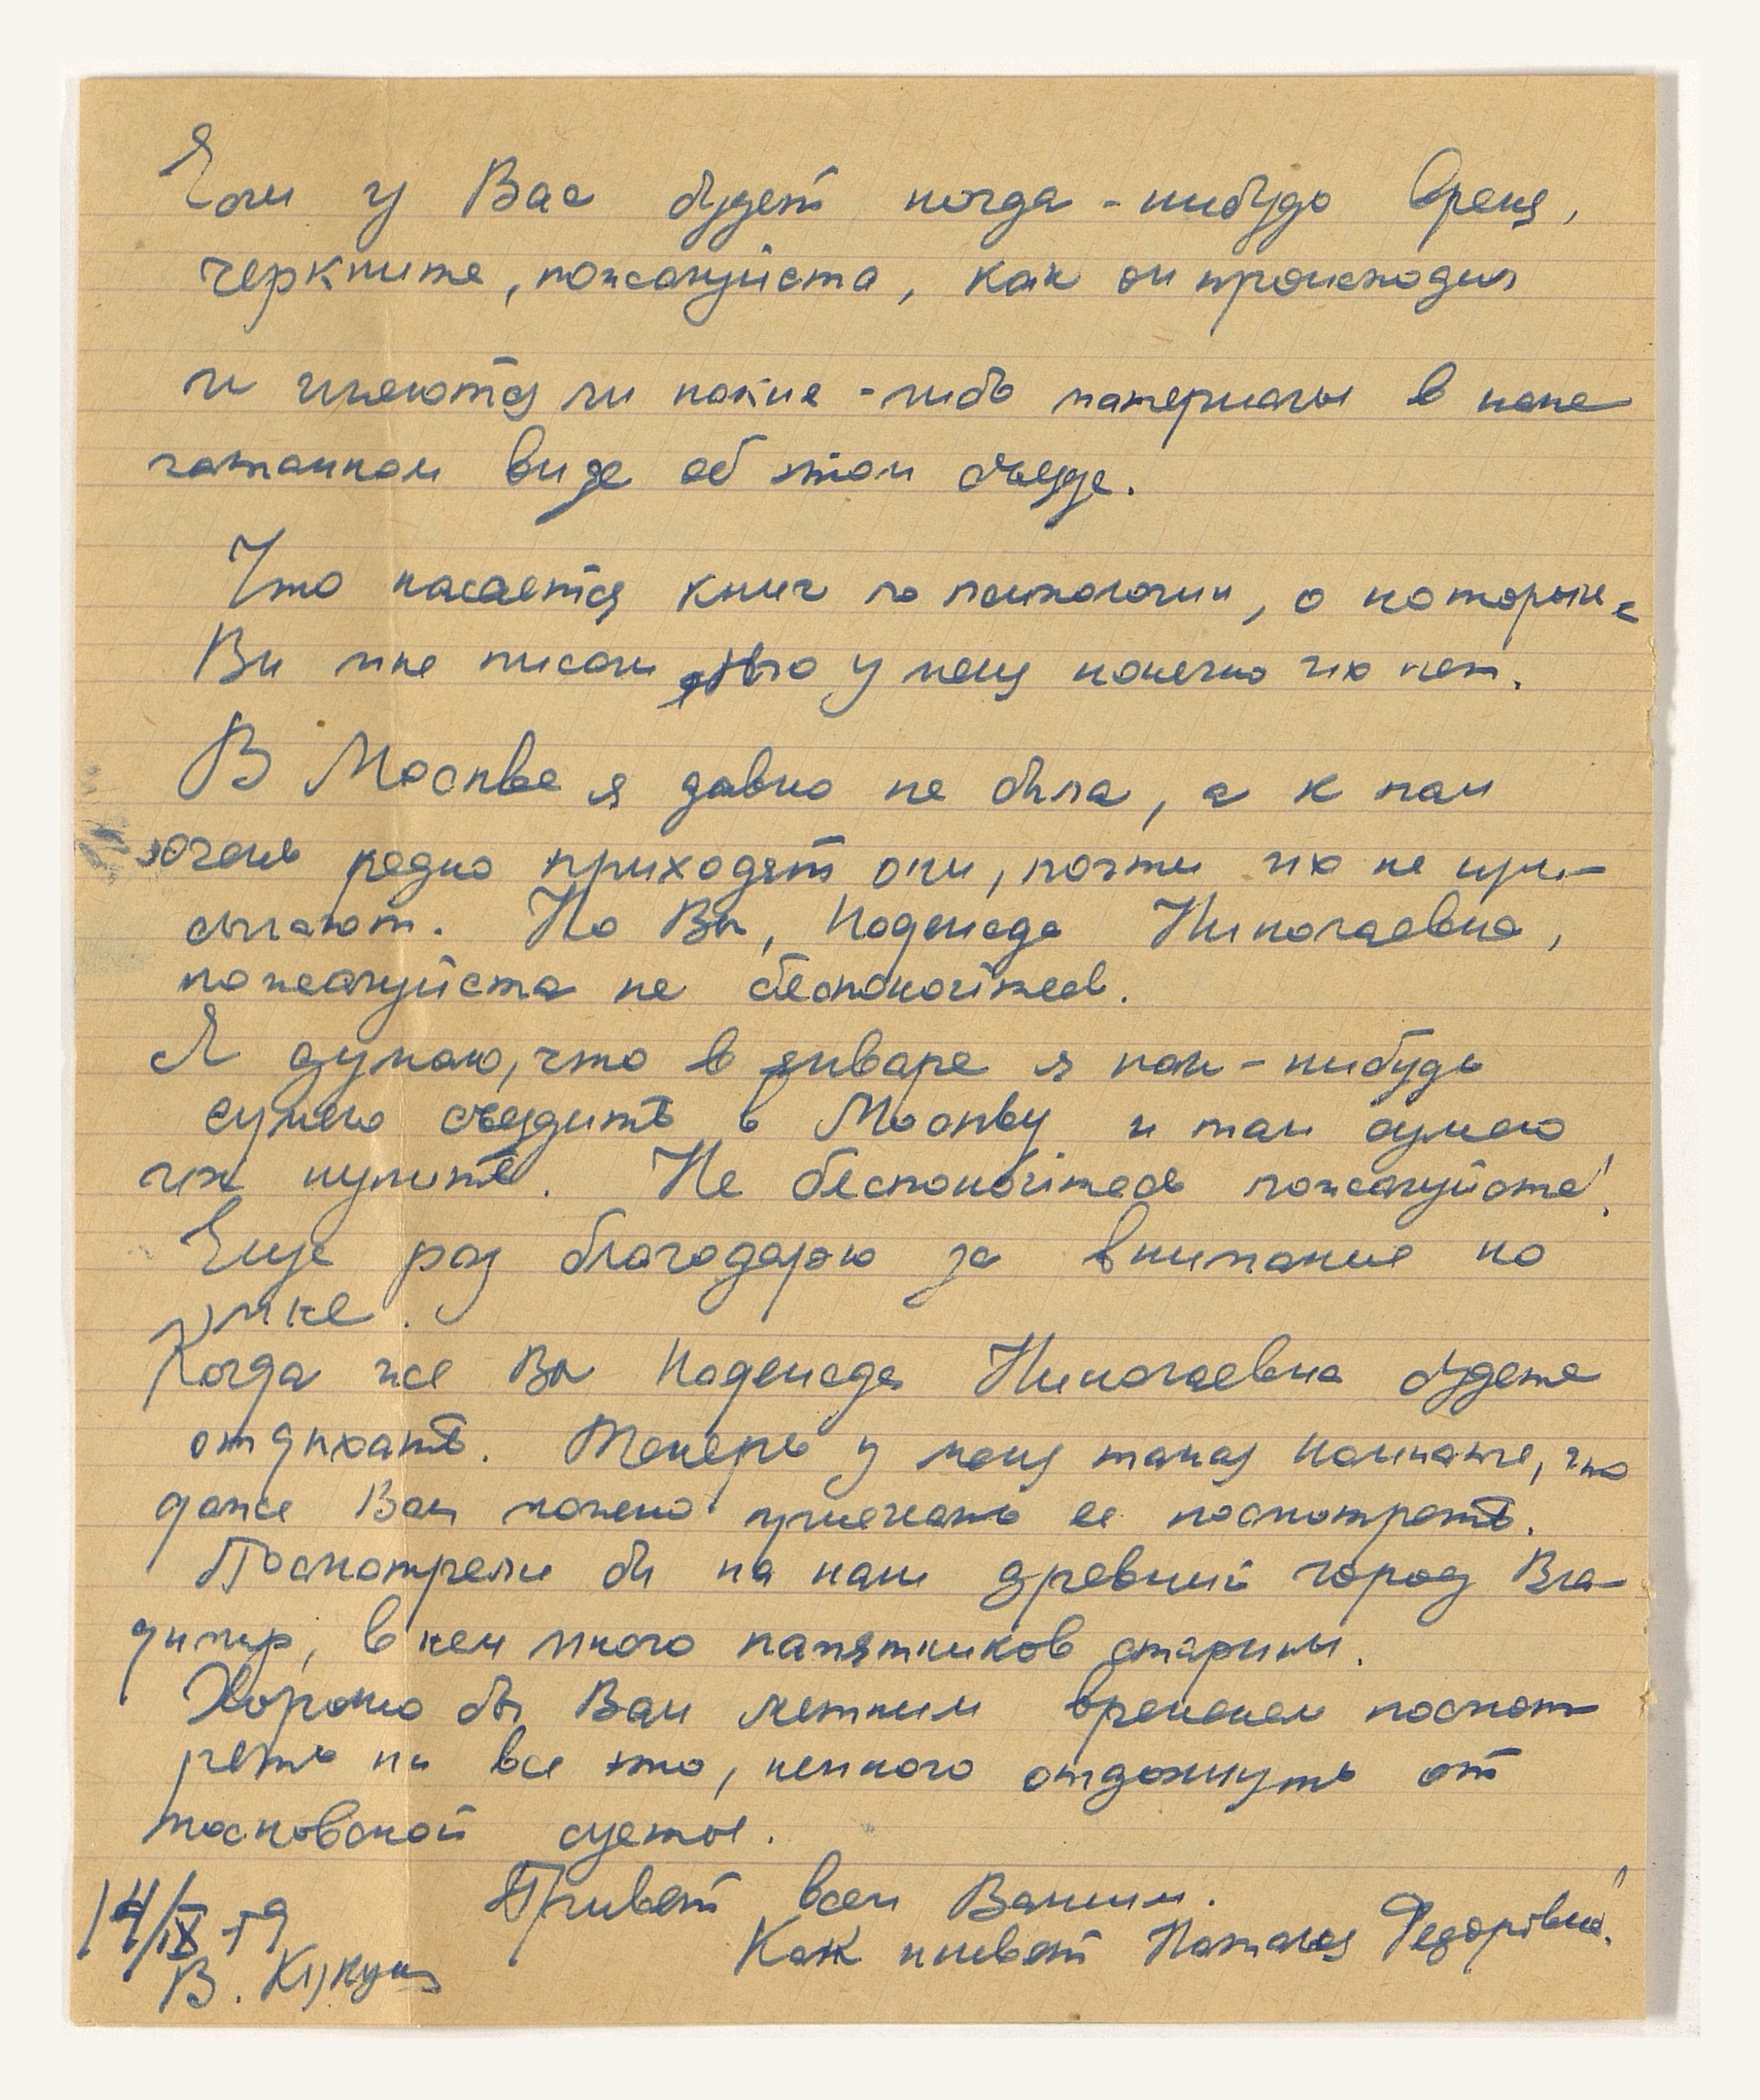 Если у Вас будет когда-нибудь время,
черкните, пожалуйста, как он происходил
и имеются ли какие-либо материалы в напе
чатанном виде об этом съезде.
Что касается книг по психологии, о которых
Вы мне писали, то у меня конечно их нет.
В Москве я давно не была, а к нам
очень редко приходят они, почти их не при-
сылают. Но Вы, Надежда Николаевна,
пожалуйста не беспокойтесь.
Я думаю, что в январе я как-нибудь
сумею съездить в Москву и там сумею
их купить. Не беспокойтесь пожалуйста!
Еще раз благодарю за внимание ко
мне.
Когда же Вы Надежда Николаевна будете
отдыхать. Теперь у меня такая комната, что
даже Вам можно приехать ее посмотреть.
Посмотрели бы на наш древний город Вла-
димир, в нем много памятников старины.
Хорошо бы Вам летним временем посмот
реть на все это, немного отдохнуть от
московской суеты.
Привет всем Вашим.
Как живет Наталия Федоровна!
14/IX-
В.